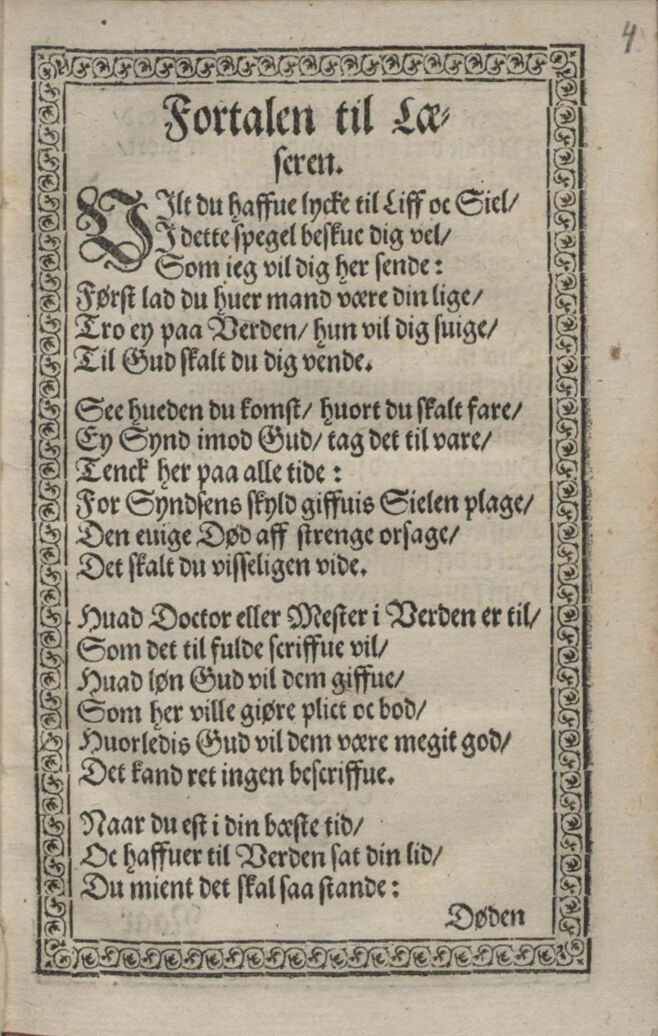 4
Fortalen til Læ⸗
seren.
VIlt du haffue lycke til Liff oc Siel/
I dette spegel beskue dig vel/
Som ieg vil dig her sende:
Først lad du huer mand være din lige/
Tro ey paa Verden/ hun vil dig suige/
Til Gud skalt du dig vende.
See hueden du komst/ huort du skalt fare/
Ey Synd imod Gud/ tag det til vare/
Tenck her paa alle tide:
For Syndsens skyld giffuis Sielen plage/
Den euige Død aff strenge orsage/
Det skalt du visseligen vide.
Huad Doctor eller Mester i Verden er til/
Som det til fulde scriffue vil/
Huad løn Gud vil dem giffue/
Som her ville giøre plict oc bod/
Huorledis Gud vil dem være megit god/
Det kand ret ingen bescriffue.
Naar du est i din bæste tid/
Oc haffuer til Verden sat din lid/
Du mient det skal saa stande:
Døden